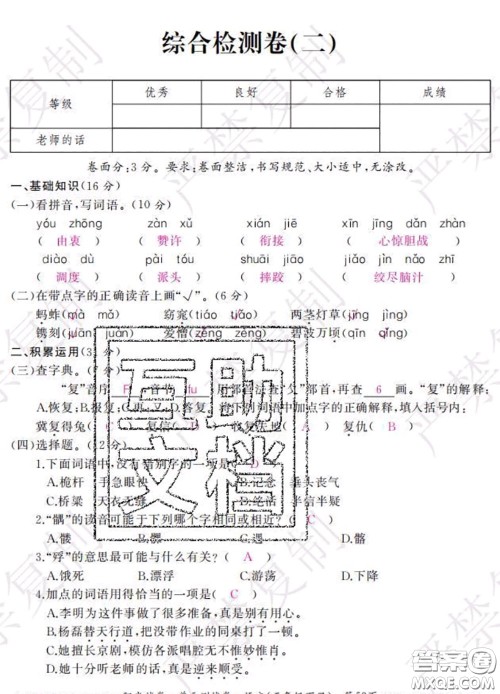 综合检测卷(二)
等级 优秀 良好 合格 成绩
老师的话
卷面分:3分。要求:卷面整洁,书写规范、大小适中,无涂改。
一、基础知识(16分)
(一)看拼音,写词语。(10分)
yóu zhōng zàn xǔ xián jiē xīn jīng dǎn zhàn
(由衷) (赞许) (衔接) (心惊胆战)
diào dù pài tóu shuāi jiāo jiǎo jìn nǎo zhī
(调度) (派头) (摔跤) (绞尽脑汁)
(二)在带点字的正确读音上画“√”。(6分)
蚂蚱(mà mǎ) 窈窕(tiáo tiǎo) 两茎灯草(jīng jìng)
镌刻(juān juàn) 爱憎(zēng zèng) 碧波万顷(qīn qǐng)
二、积累运用(31分)
(三)查字典。(
“复”音序 F 音节 fu 用部首法查“夂”部首,再查 6 画。“复”的解释:
A.恢复;B.报复;C. D.答复。给下列词语中加点字的正确解释,填入括号内:
冀复得兔( 复信( 复仇(B)
(四)选择题。(
1.下面词语中,没有错别字的一项是(D)
A.桅杆 手急眼 B. 念 垂头丧气
C.桥梁 天衣无缝 D. 结 半信半疑
2.“髃”的读音可能于下列哪个字相同或相近?(C)
A.髅 C.遇 D.骼
3.“殍”的意思最可能与什么有关?(A)
A.饿死 B.漂浮 C.游荡 D.下降
4.加点的词语用得恰当的一项是(C)
A.李明为这件事做了很多准备,真是别有用心。
B.杨磊替天行道,把没带作业的同学赶出教室。
C.她擅长京剧,模仿各派唱腔无不惟妙惟肖。
D.小林十分听老师的话,真是逆来顺受。
严禁复制
互助
文档
MX作业帮